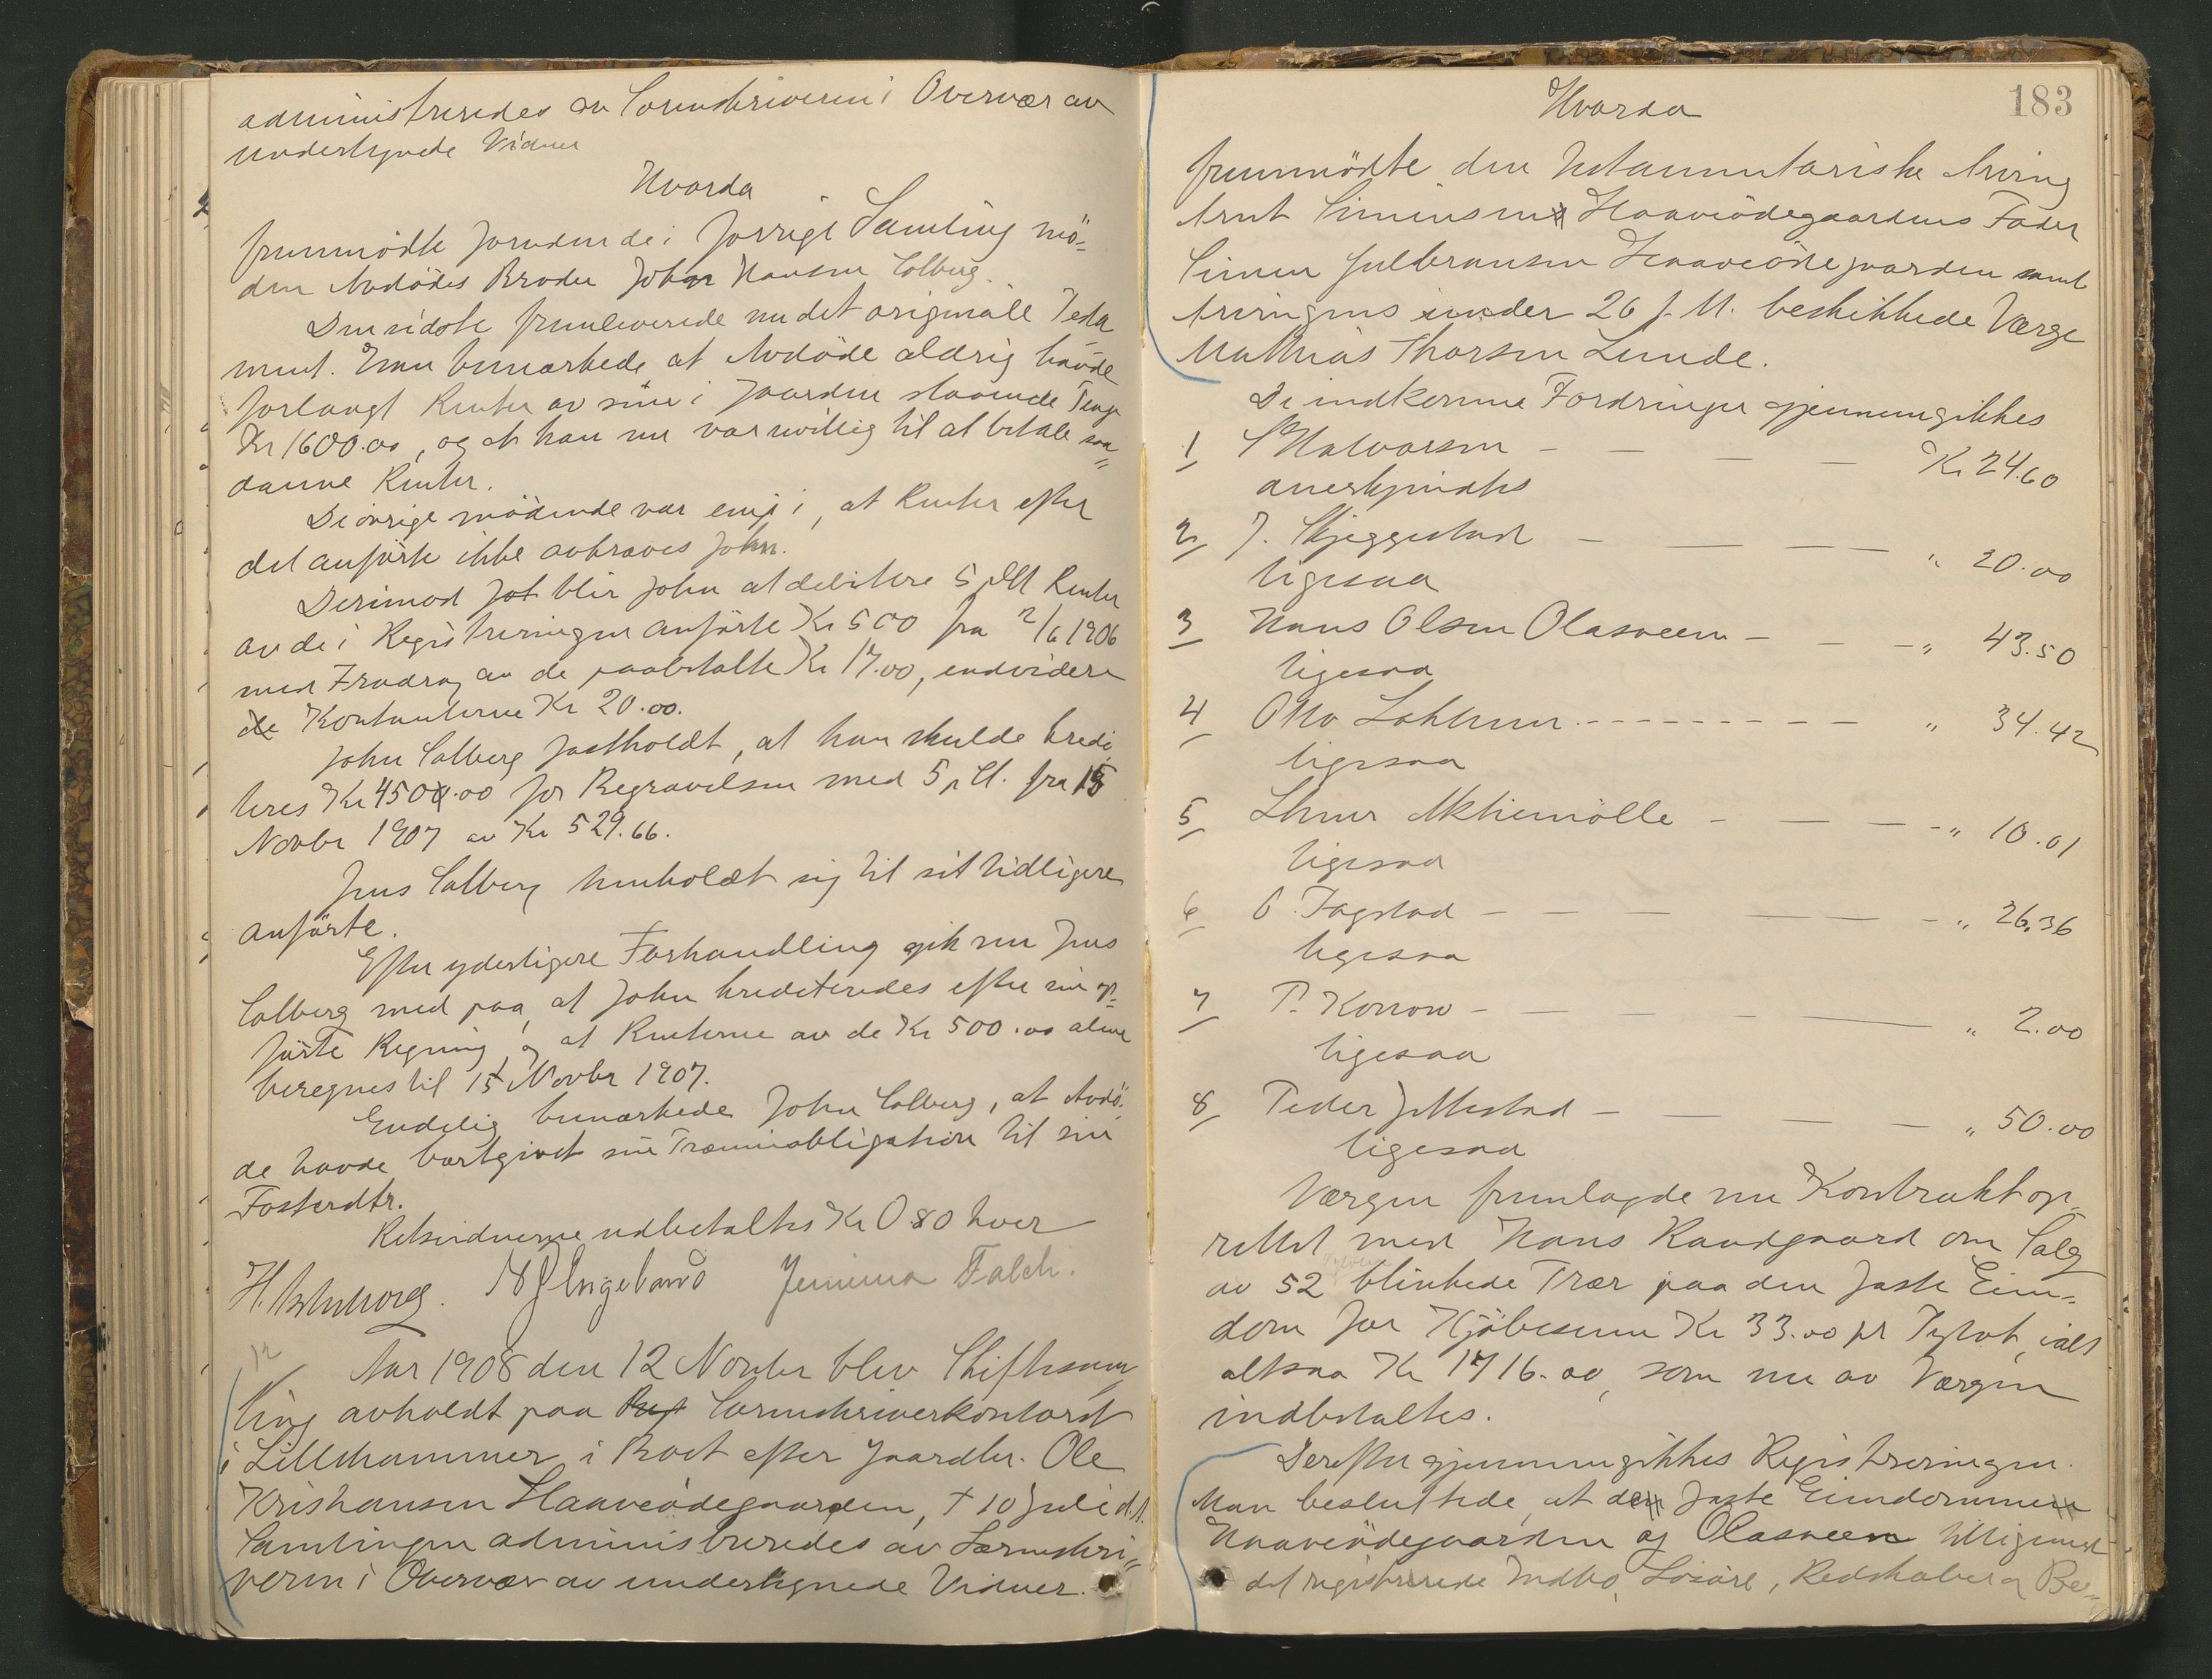 administreredes av Sorenskriveren i Overvær av
undertegnede Vidner
Hvorda
fremmödte foruden de i forrige Samling mö-
den Avdödes Broder John Hansen Solberg.
Den sidste fremleverede nu det originale Testa
ment. Han bemærkede at Avdöde aldrig havde
forlangt Renter av sine i Gaarden staaende Penge
Kr 1600.00, og at han nu var uvillig til at betale saa-
danne Renter.
De övrige mödende var enig i, at Renter efter
det anförte ikke avkræves John.
Derimod blir John at debitere 5 pCt Renter
av de i Registreringen anförte Kr 500 fra 2/6 1906
med Fradrag av de paabetalte Kr 17.00, endvidere
de Kontanterne Kr 20.00.
John Solberg fastholdt, at han skulde kredi
teres Kr 450.00 for Begravelsen med 5 pCt. fra 15
Novbr 1907 av Kr 529.66.
Jens Solberg henholdt sig til sit tidligere
anförte.
Efter yderligere Forhandling gik nu Jens
Solberg med paa, at John krediteredes efter sin op-
förte Regning, og at Renterne av de Kr 500.00 alene
beregnes til 15 Novbr 1907.
Endelig bemærkede John Solberg, at Avdö-
de havde bortgivet sin Præmieobligation til sin
Fosterdtr.
Retsvidnerne udbetaltes Kr 0 80 hver
N J Engeland Jemima Falch.
Aar 1908 den 12 Novbr blev Skiftesam
ling avholdt paa Sorenskriverkontoret
i Lillehammer i Boet efter Gaardbr. Ole
Kristiansen Haaveödegaarden, † 10 Juli d.A.
Samlingen administreredes av Sorenskri-
veren i Overvær av undertegnede Vidner.
183
Hvorda
fremmödte den testamentariske Arving
Arnt Simensen Haaveödegaardens Fader
Simen Gulbransen Haaveödegaarden samt
Arvingens under 26 f. M. beskikkede Værge
Mathias Thorsen Lunde.
De indkomne Fordringer gjennemgikkes
1 S Halvorsen - - - - Kr 24.60
anerkjendtes
2 J. Skjeggestad - - - - " 20.00
ligesaa
3 Hans Olsen Olasveen - - - " 43.50
ligesaa
4 Otto Lohkren - - - - - - - - " 34.42
ligesaa
5 Lhmr Aktiemölle - - - - " 10.01
ligesaa
6 O. Fagstad - - - - - " 26,36
ligesaa
7 P. Korrow - - - - " 2.00
ligesaa
8 Peder Jettestad - - - - " 50.00
ligesaa
Værgen fremlagde nu Kontrakt op-
rettet med Hans Randgaard om Salg
av 52 tylvter blinkede Trær paa den faste Eien-
dom for Kjöbesum Kr 33.00 pr Tylvt, ialt
altsaa Kr 1716.00, som nu av Værgen
indbetaltes.
Derefter gjennemgikkes Registreringen.
Man besluttede, at den faste Eiendommen
Haaveödegaarden og Olasveen tilligemed
det registrerede Indbo, Lösöre, Redskaber og Be-